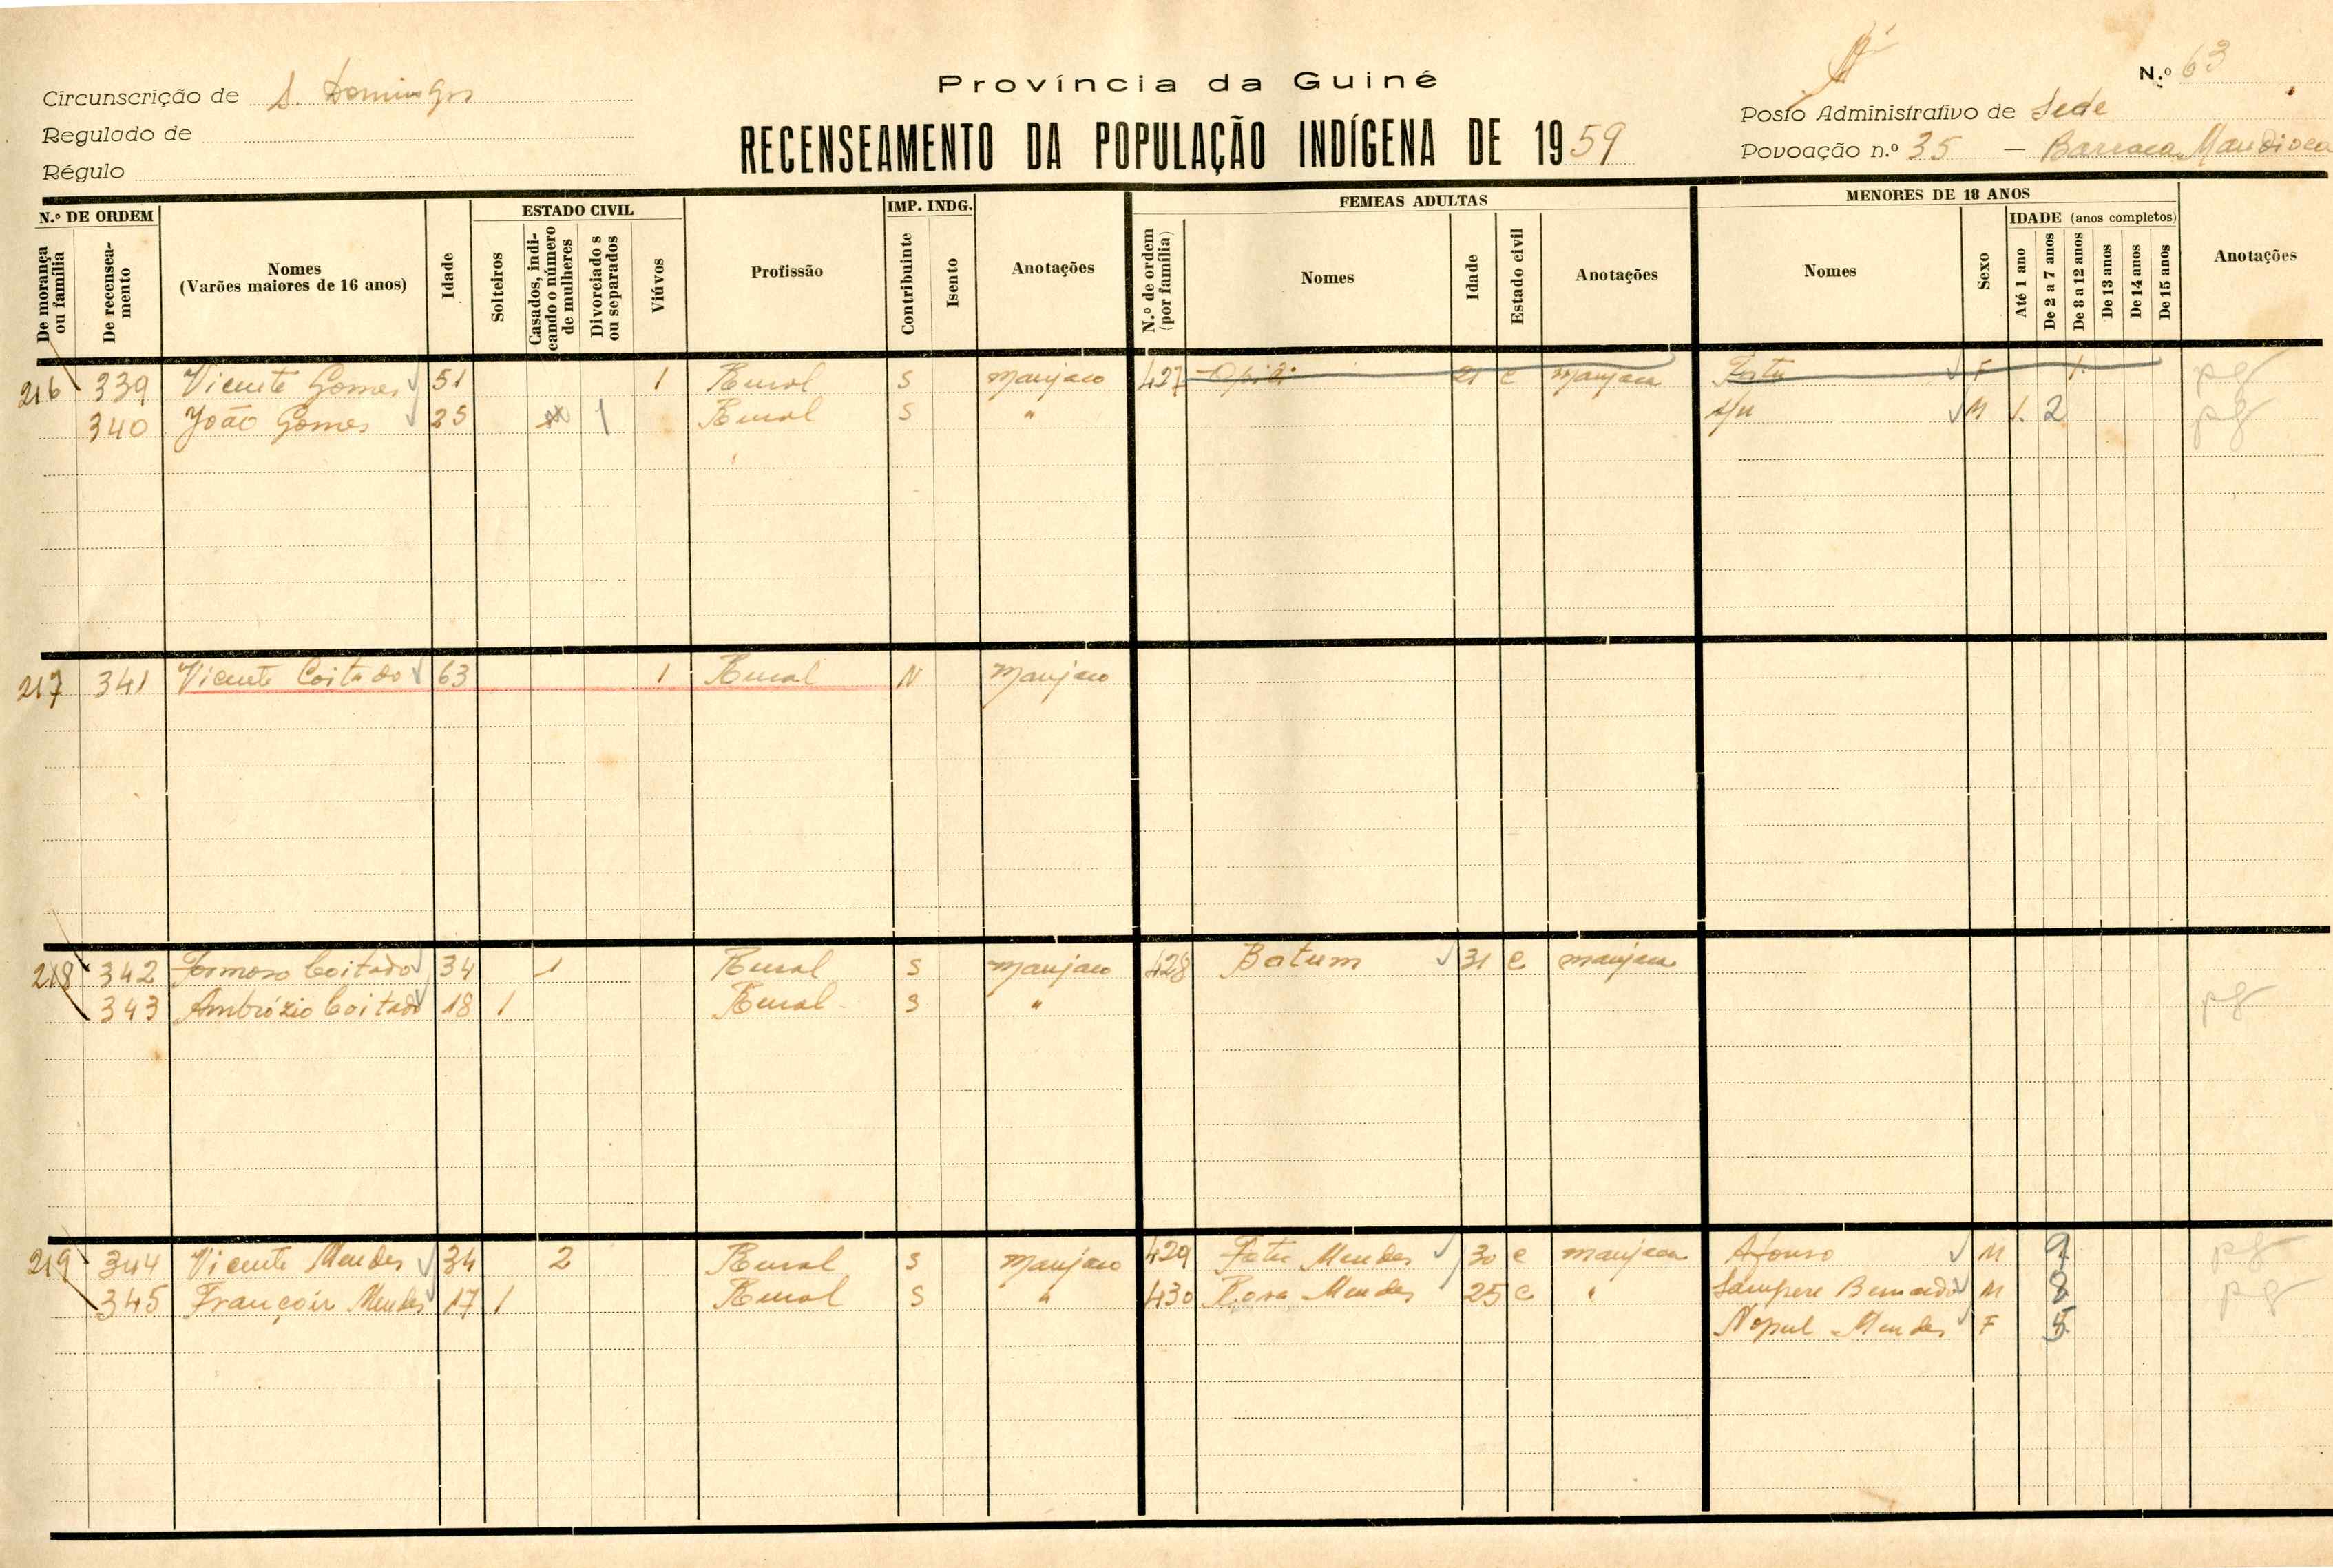 Província da Guiné
N.º 63
Circunscrição de S. Domingos
Regulado de
Régulo
RECENSEAMENTO DA POPULAÇÃO INDÍGENA DE 1959
Posto Administrativo de Sede
Povoação n.º 35 — Barraca Mandioca
N.º DE ORDEM
De morança ou família
De recenseamento
Nomes (Varões maiores de 16 anos)
Idade
ESTADO CIVIL
Solteiros
Casados, indicando o número de mulheres
Divorciado s ou separados
Viúvos
Profissão
IMP. INDG.
Contribuinte
Isento
Anotações
FEMEAS ADULTAS
N.º de ordem (por família)
Nomes
Idade
Estado civil
Anotações
MENORES DE 18 ANOS
Nomes
Sexo
IDADE (anos completos)
Até 1 ano
De 2 a 7 anos
De 8 a 12 anos
De 13 anos
De 14 anos
De 15 anos
Anotações
216 339 Vicente Gomes 51 1 Rural S manjaco 427 21 C manjaca Fatu F 1 pg
340 João Gomes 25 1 Rural S " s/n M 1 2 pg
217 341 Vicente Coitado 63 1 Rural N manjaco
218 342 Formoso Coitado 34 1 Rural S manjaco 428 Batum 31 C manjaca
343 Ambrózio Coitado 18 1 Rural S " pg
219 344 Vicente Mendes 34 2 Rural S manjaco 429 Fatu Mendes 30 C manjaca Afonso M 9 pg
345 Françoir Mendes 17 1 Rural S " 430 Rosa Mendes 25 C " Sampere Bernardo M 8 pg
Mendes F 5